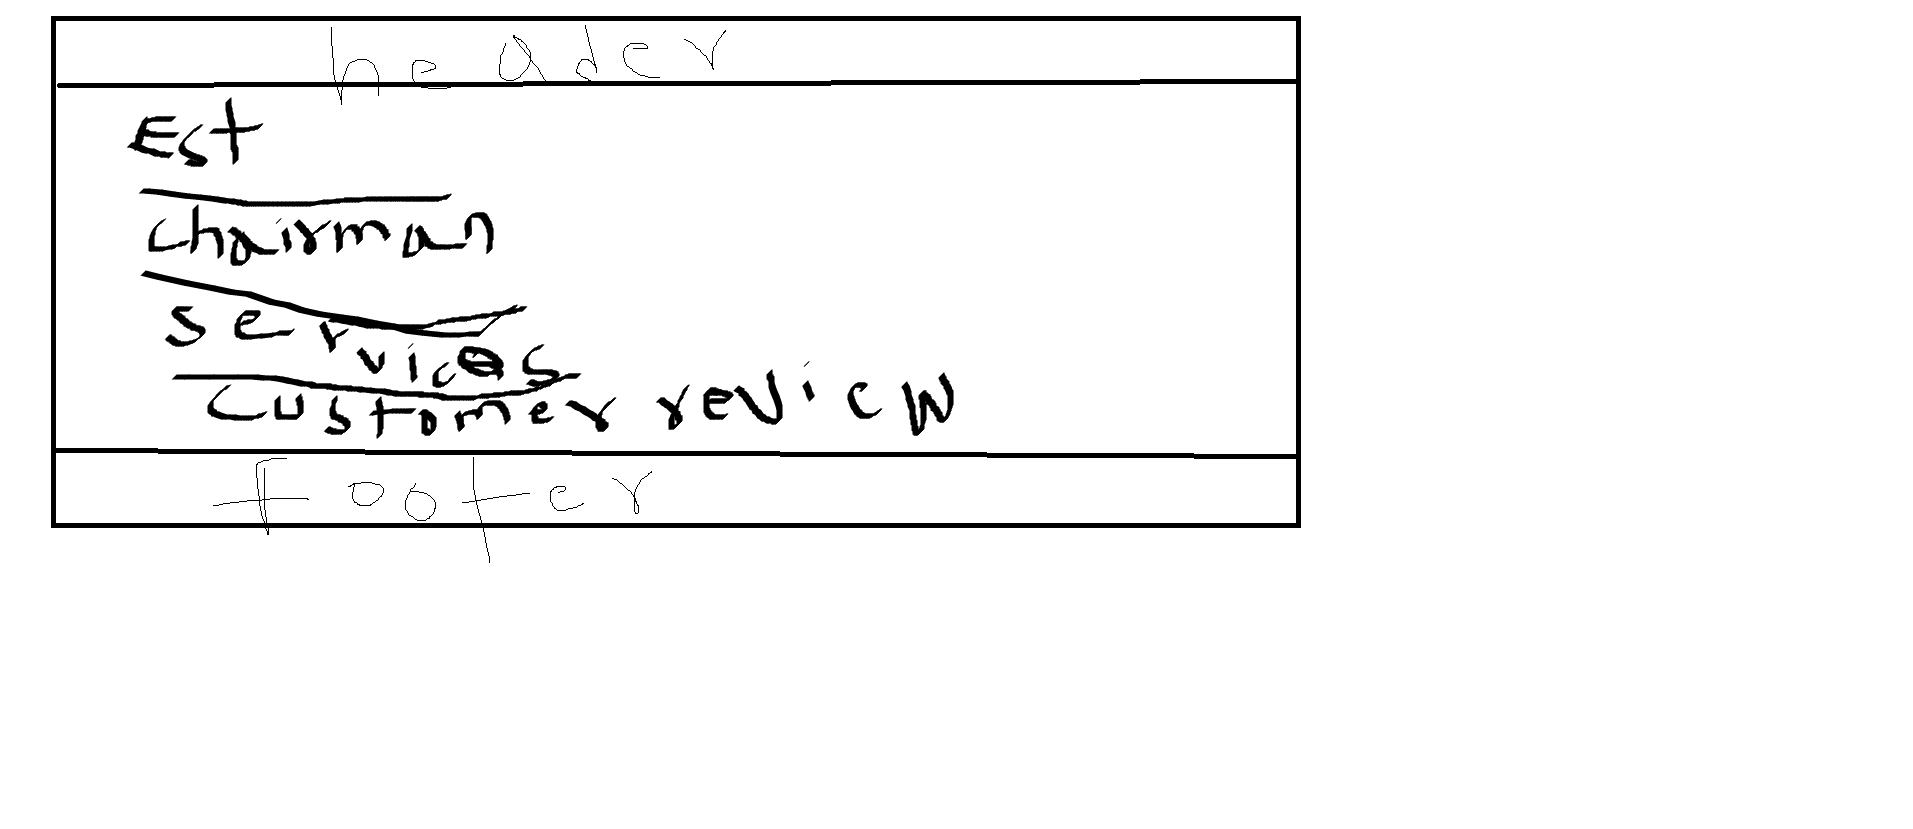 header
Est
chairman
services
customer review
footer